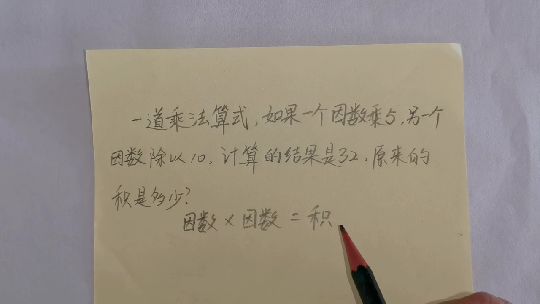 一道乘法算式，如果一个因数乘5，另一个
因数除以10，计算的结果是32，原来的
积是多少？
因数×因数=积